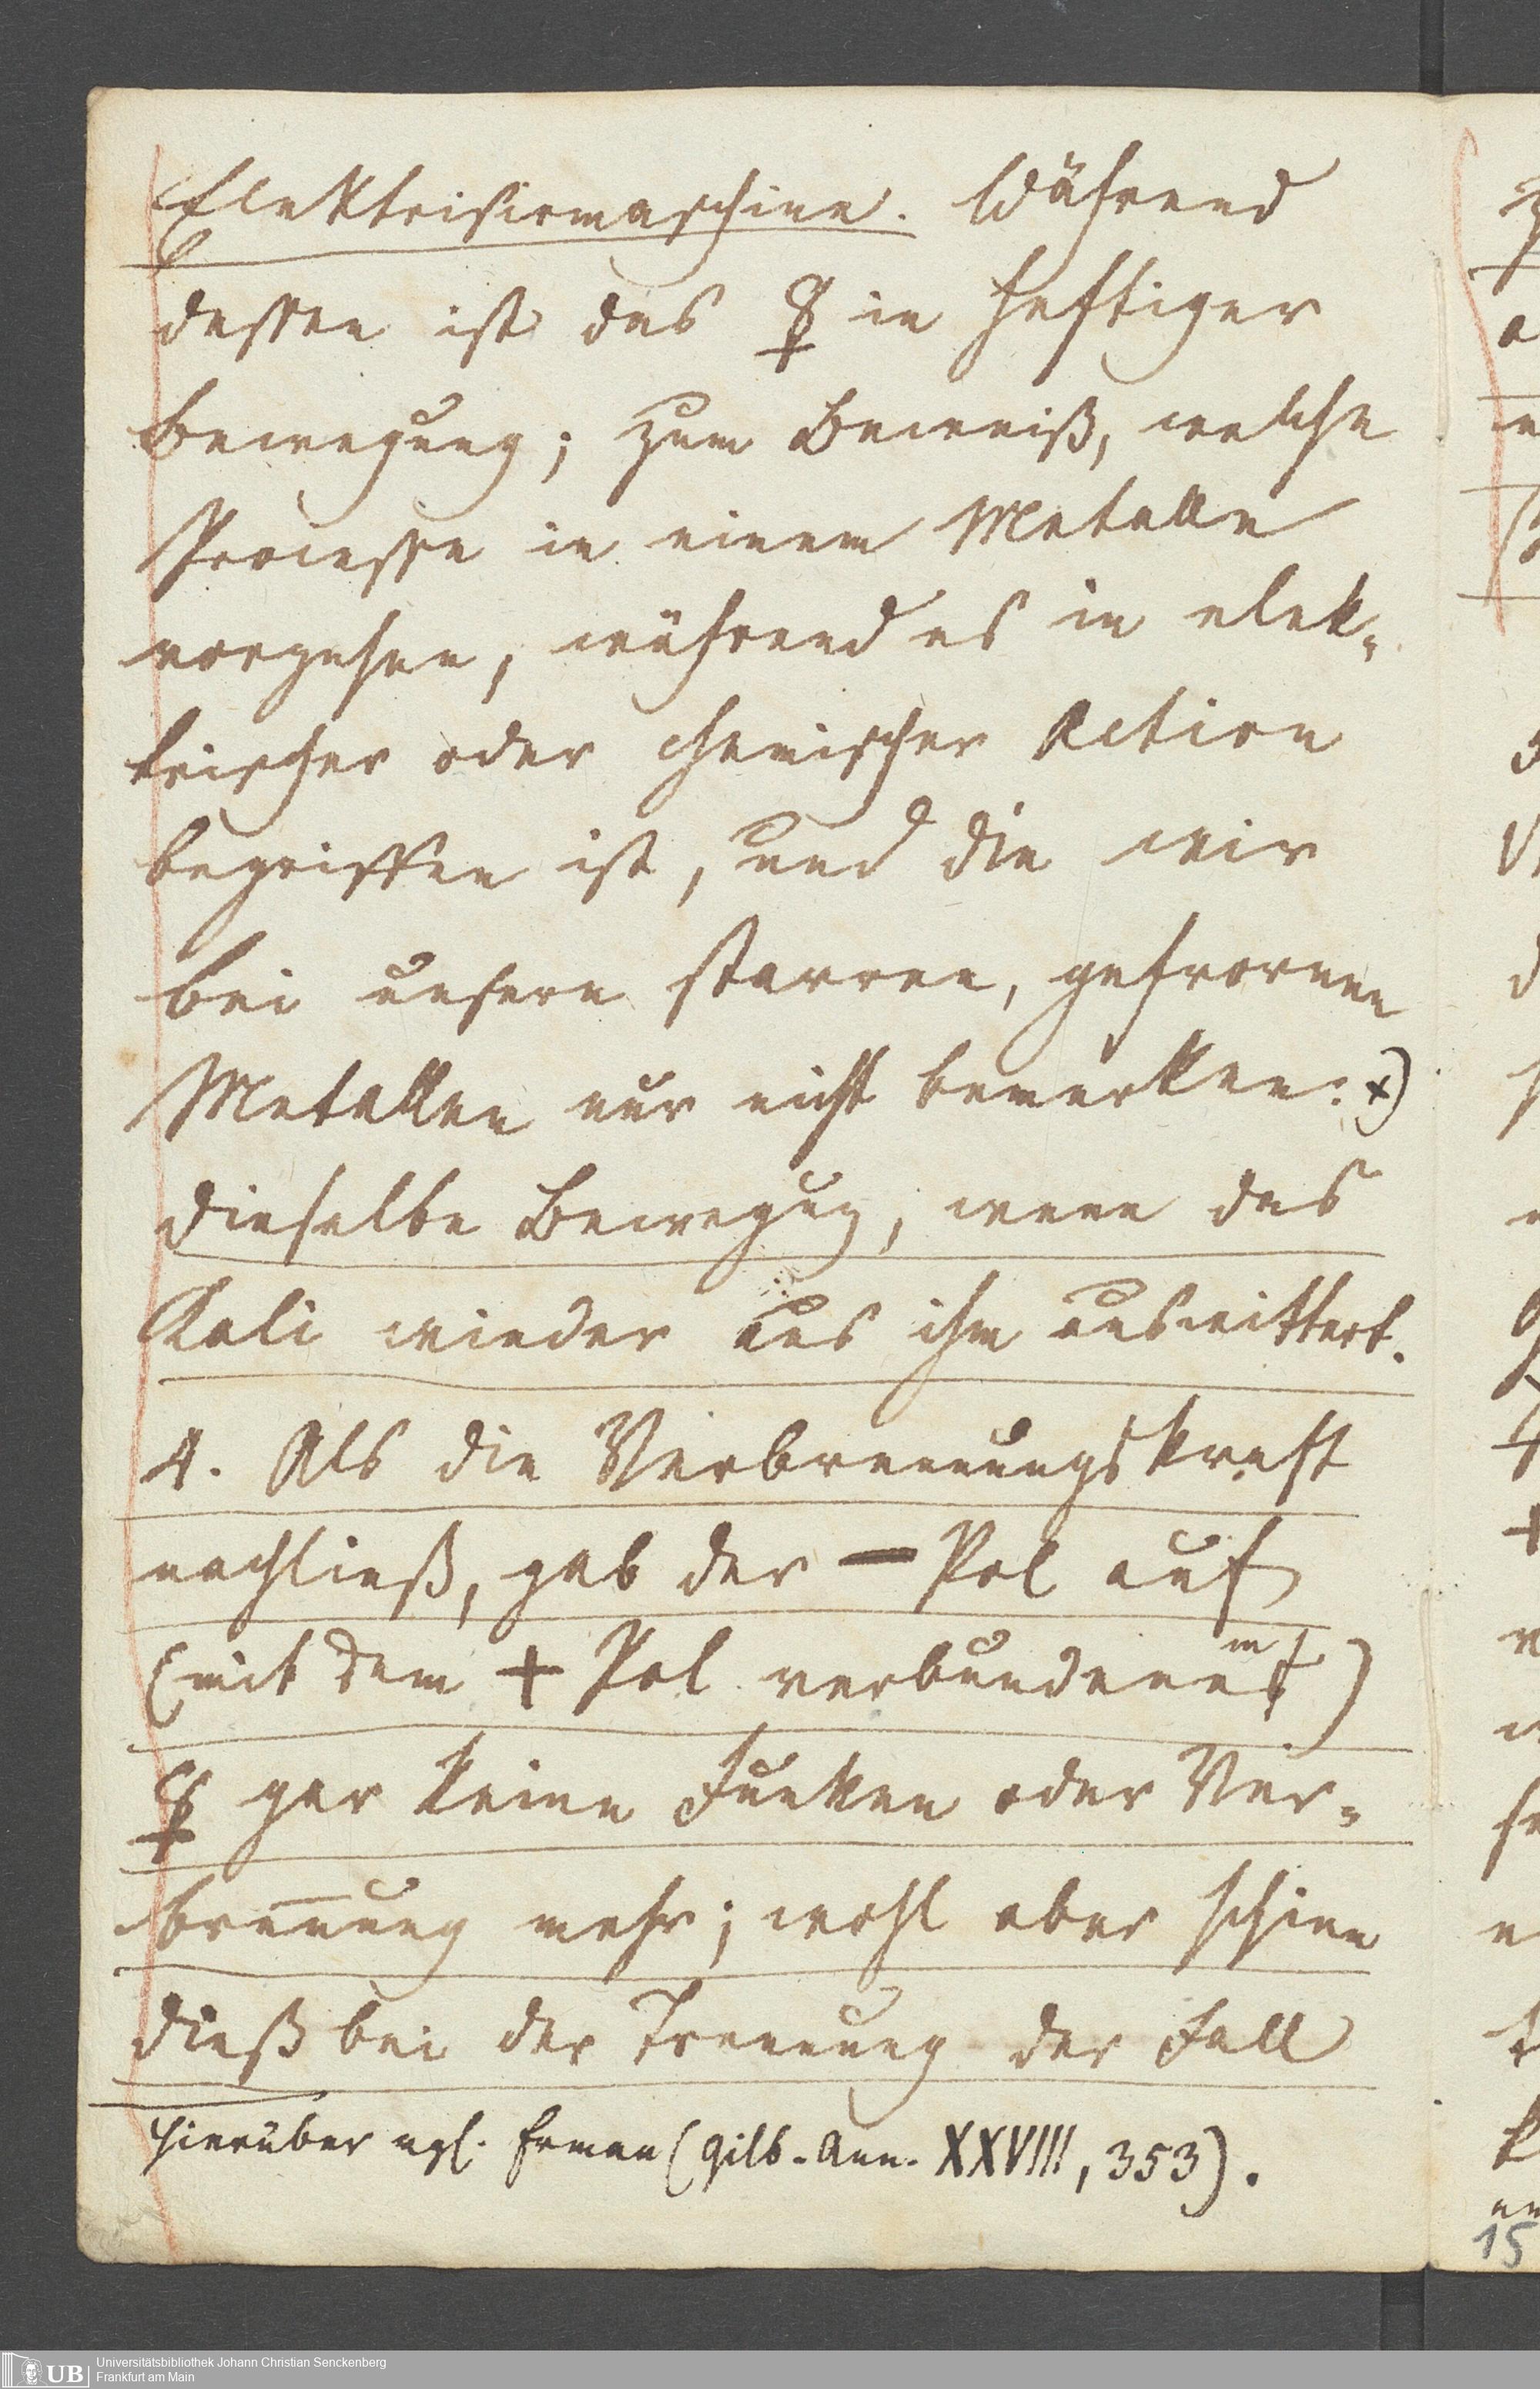 Elektrisirmaschine. Während
dessen ist das ☿ in heftiger
Bewegung; zum Beweiß, welche
Processe in einem Metalle
vorgehen, während es in elek-
trischer oder chemischer Action
begriffen ist, und die wir
bei unsern starren, gefrornen
Metallen nur nicht bemerken. +)
dieselbe Bewegung, wenn das
Kali wieder aus ihm auswittert.
4. Als die Verbrennungskraft
nachließ, gab der – Pol auf
(mit dem + Pol verbundenem)
☿ gar keine Funken oder Ver-
brennung mehr; wohl aber schien
dieß bei der Trennung der Fall
hierüber vgl. Erman (Gilb. Ann. XXVIII, 353).
15
UB
Universitätsbibliothek Johann Christian Senckenberg
Frankfurt am Main